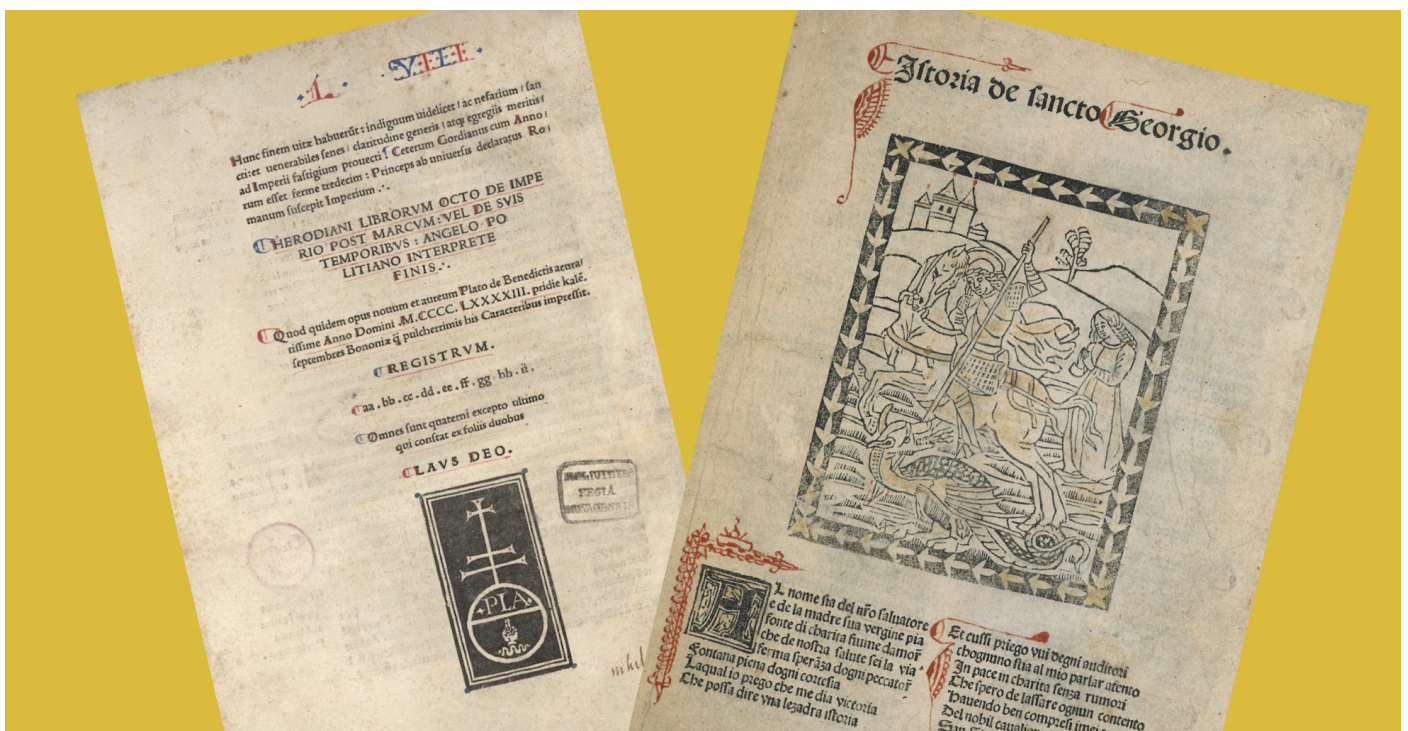 L. VIII.
Hunc finem uitæ habuerũt : indignum uidelicet / ac nefarium / san
cti:et uenerabiles senes / claritudine generis / atq; egregiis meritis /
ad Imperii fastigium prouecti / Ceterum Gordianus cum Anno /
rum esset ferme tredecim : Princeps ab uniuersis declaratus Ro /
manum suscepit Imperium .·.
HERODIANI LIBRORVM OCTO DE IMPE
RIO POST MARCVM:VEL DE SVIS
TEMPORIBVS : ANGELO PO
LITIANO INTERPRETE
FINIS.·.
Quod quidem opus nouum et aureum Plato de Benedictis acura /
tissime Anno Domini .M.CCCC. LXXXXIII. pridie kalẽ.
septembres Bononiæ q̃ pulcherrimis his Caracteribus impressit.
REGISTRVM.
aa . bb . cc . dd . ee . ff . gg hh . ii .
Omnes sunt quaterni excepto ultimo
qui constat ex foliis duobus
LAVS DEO.
PLA
REGIA
nihil
Istoria de sancto Georgio.
AL nome sia del nr̃o saluatore
e de la madre sua vergine pia
fonte di charita fiume damor̃
che de nostra salute sei la via
ferma sperãza dogni peccator̃
Fontana piena dogni cortesia
Laqual io prego che me dia victoria
Che possa dire vna lezadra istoria
Et cussi priego vui degni auditori
chognuno stia al mio parlar atento
In pace in charita senza rumori
Che spero de lassare ognun contento
Hauendo ben compresi
Del nobil
San